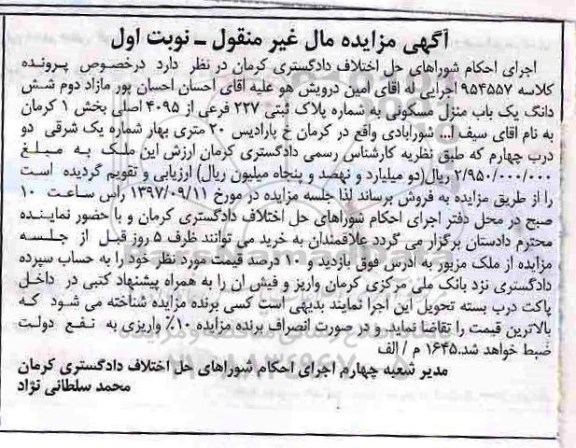 آگهی مزایده مال غیر منقول ـ نوبت اول
اجرای احکام شوراهای حل اختلاف دادگستری کرمان در نظر دارد درخصوص پرونده
کلاسه ۹۵۴۵۵۷ اجرایی له اقای امین درویش هو علیه اقای احسان احسان پور مازاد دوم شش
دانگ یک باب منزل مسکونی به شماره پلاک ثبتی ۲۲۷ فرعی از ۴۰۹۵ اصلی بخش ۱ کرمان
به نام اقای سیف ا... شورآبادی واقع در کرمان خ پارادیس ۲۰ متری بهار شماره یک شرقی دو
درب چهارم که طبق نظریه کارشناس رسمی دادگستری کرمان ارزش این ملک به مبلغ
۲/۹۵۰/۰۰۰/۰۰۰ ریال(دو میلیارد و نهصد و پنجاه میلیون ریال) ارزیابی و تقویم گردیده است
را از طریق مزایده به فروش برساند لذا جلسه مزایده در مورخ ۱۳۹۷/۰۹/۱۱ راس ساعت ۱۰
صبح در محل دفتر اجرای احکام شوراهای حل اختلاف دادگستری کرمان و با حضور نماینده
محترم دادستان برگزار می گردد علاقمندان به خرید می توانند ظرف ۵ روز قبل از جلسه
مزایده از ملک مزبور به ادرس فوق بازدید و ۱۰ درصد قیمت مورد نظر خود را به حساب سپرده
دادگستری نزد بانک ملی مرکزی کرمان واریز و فیش ان را به همراه پیشنهاد کتبی در داخل
پاکت درب بسته تحویل این اجرا نمایند بدیهی است کسی برنده مزایده شناخته می شود که
بالاترین قیمت را تقاضا نماید. و در صورت انصراف برنده مزایده ۱۰٪ واریزی به نفع دولت
ضبط خواهد شد.۱۶۴۵ م / الف
مدیر شعبه چهارم اجرای احکام شوراهای حل اختلاف دادگستری کرمان
محمد سلطانی نژاد